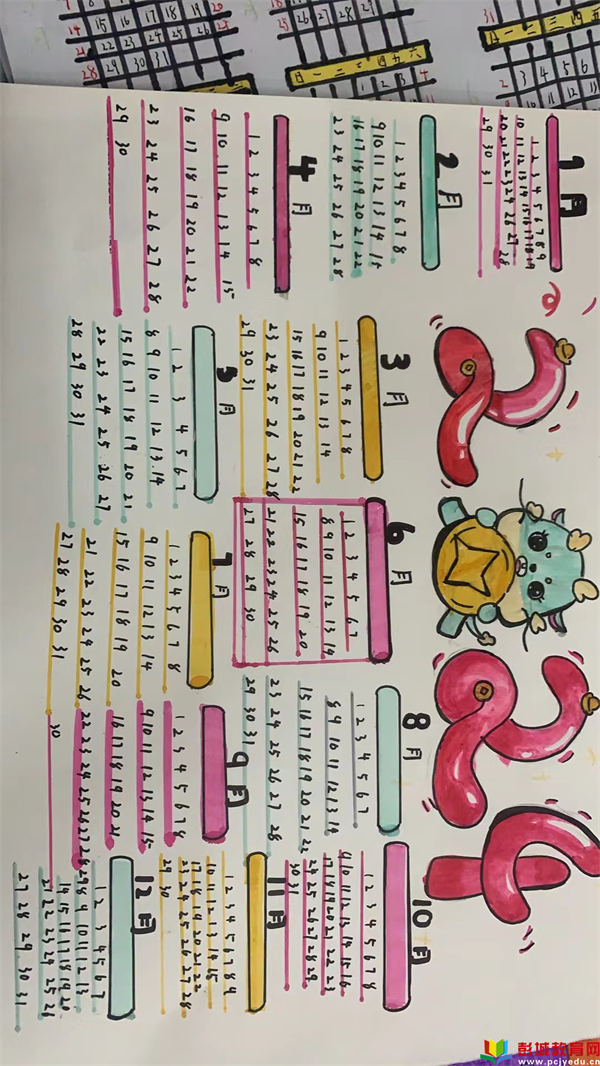 2024
1月
1 2 3 4 5 6 7 8 9
10 11 12 13 14 15 16 17 18 19
20 21 22 23 24 26 27 28
29 30 31
2月
1 2 3 4 5 6 7 8
9 10 11 12 13 14 15
16 17 18 19 20 21 22
23 24 25 26 27 28
3月
1 2 3 4 5 6 7 8
9 10 11 12 13 14
15 16 17 18 19 20 21 22
23 24 25 26 27 28
29 30 31
4月
1 2 3 4 5 6 7 8
9 10 11 12 13 14 15
16 17 18 19 20 21 22
23 24 25 26 27 28
29 30
5月
1 2 3 4 5 6 7
8 9 10 11 12 13 14
15 16 17 18 19 20 21
22 23 24 25 26 27
28 29 30 31
6月
1 2 3 4 5 6 7
8 9 10 11 12 13 14
15 16 17 18 19 20
21 22 23 24 25 26
27 28 29 30
7月
1 2 3 4 5 6 7 8
9 10 11 12 13 14
15 16 17 18 19 20
21 22 23 24 25 26
27 28 29 30 31
8月
1 2 3 4 5 6 7
8 9 10 11 12 13 14
15 16 17 18 19 20 21 22
23 24 25 26 27 28
29 30 31
9月
1 2 3 4 5 6 7 8
9 10 11 12 13 14 15
16 17 18 19 20 21
22 23 24 25 26 27 28 29
30
10月
1 2 3 4 5 6 7 8
9 10 11 12 13 14 15 16
17 18 19 20 21 22 23
24 25 26 27 28 29
30 31
11月
1 2 3 4 5 6 7 8 9
10 11 12 13 14 15
17 18 19 20 21 22
23 24 25 26 27 28
29 30
12月
1 2 3 4 5 6 7
8 9 10 11 12 13
14 15 16 17 18 19 20
21 22 23 24 25 26
27 28 29 30 31
彭城教育网
www.pcjyedu.cn